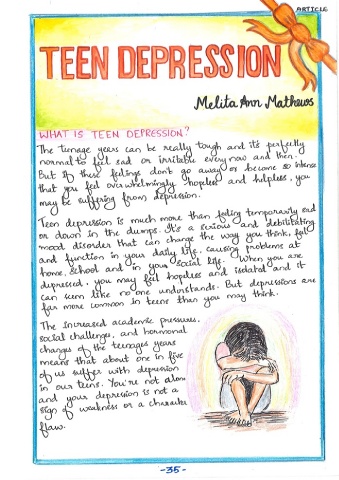 ARTICLE
TEEN DEPRESSION
Melita Ann Mathews
WHAT IS TEEN DEPRESSION?
The teenage years can be really tough and it's perfectly
normal to feel sad or irritable every now and then.
But if these feelings don't go away or become so intense
that you feel overwhelmingly hopeless and helpless, you
may be suffering from depression.
Teen depression is much more than feeling temporarily sad
or down in the dumps. It's a serious and debilitating
mood disorder that can change the way you think, feel
and function in your daily life, causing problems at
home, school and in your social life. When you are
depressed, you may feel hopeless and isolated and it
can seem like no one understands. But depressions are
far more common in teens than you may think.
The increased academic pressures,
social challenges, and hormonal
changes of the teenages years
means that about one in five
of us suffer with depression
in our teens. You're not alone
and your depression is not a
sign of weakness or a character
flaw.
-35-